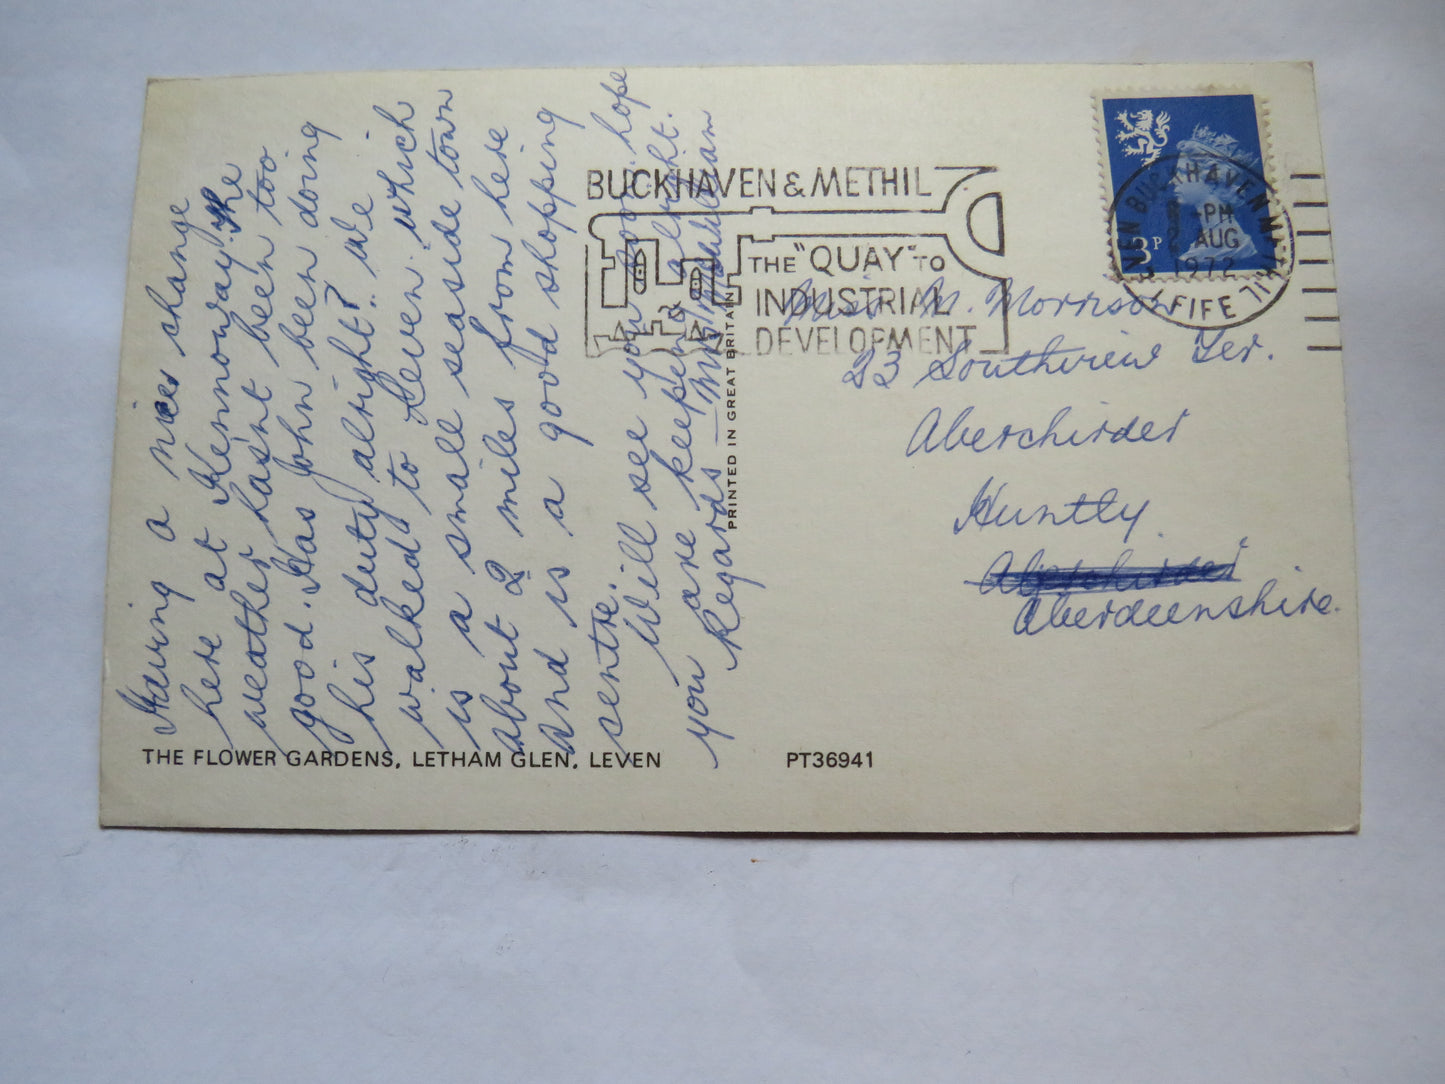 Having a nice change
here at Kennoway. The
weather hasn't been too
good. Has John been doing
his duty alright?. We
walked to Leven. which
is a small seaside town
about 2 miles from here
and is a good shopping
sentre.
Will see you soon. hope
you are keeping alright.
Regards
THE FLOWER GARDENS, LETHAM GLEN, LEVEN
PT36941
PRINTED IN GREAT BRITAIN
BUCKHAVEN & METHIL
THE "QUAY" TO
INDUSTRIAL
DEVELOPMENT
3P
BUCKHAVEN METHIL
PM
AUG
1972
FIFE
Miss M. Morrison
23 Southview Ter.
Aberchirder
Huntly
Aberdeenshire.